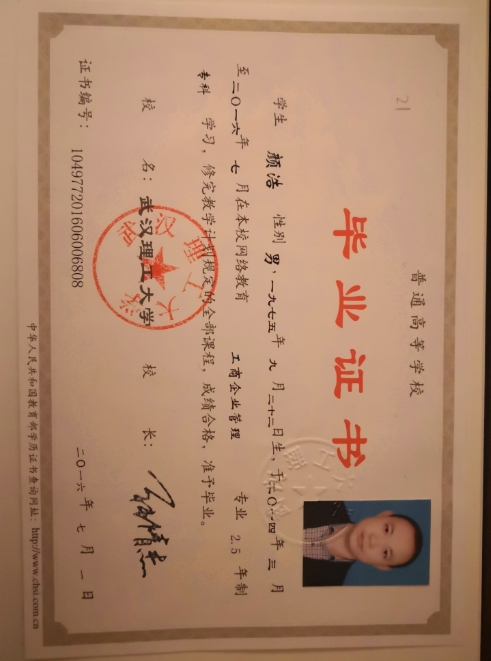 21
普通高等学校
毕业证书
学生 颜浩 性别 男,一九七五年 九 月 二十二日生,于二〇一四年 三 月
至二〇一六年 七 月在本校网络教育 工商企业管理 专业 2.5 年制
专科 学习,修完教学计划规定的全部课程,成绩合格,准予毕业。
校 名:武汉理工大学 校 长:
证书编号:104977201606006808 二〇一六年 七 月 一 日
中华人民共和国教育部学历证书查询网址:http://www.chsi.com.cn
武汉理工大学